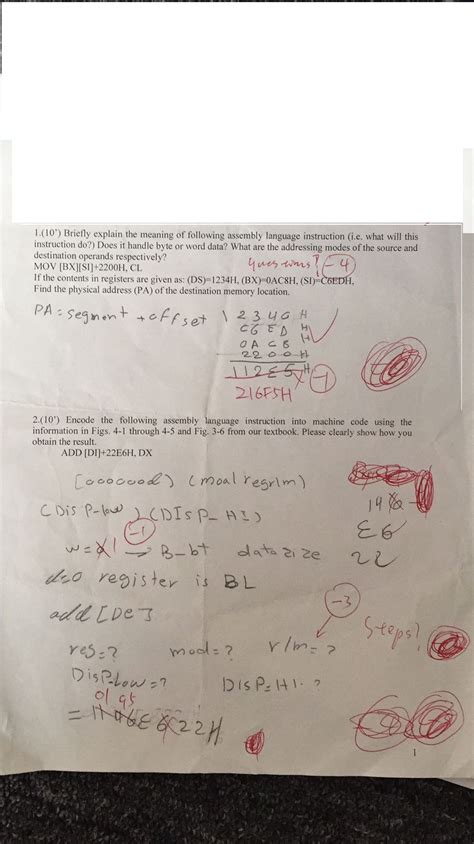 1.(10') Briefly explain the meaning of following assembly language instruction (i.e. what will this
instruction do?) Does it handle byte or word data? What are the addressing modes of the source and
destination operands respectively?
MOV [BX][SI]+2200H, CL -4
If the contents in registers are given as: (DS)=1234H, (BX)=0AC8H, (SI)=C6EDH,
Find the physical address (PA) of the destination memory location.
PA = segment + offset 1 2 3 4 0 H
C6 E D H
0A C 8 H
2 2 0 0 H
112E5 H -1
216F5H
2.(10') Encode the following assembly language instruction into machine code using the
information in Figs. 4-1 through 4-5 and Fig. 3-6 from our textbook. Please clearly show how you
obtain the result.
ADD [DI]+22E6H, DX
(mod regrm)
(DisP-low) (DISP-HI)
-1 E6
w = 1 → data 22
register is BL
add [DE]
-3
reg=? mod=? r/m=? Steps?
DisP-Low=? DISP-HI.?
01 95
22H
1